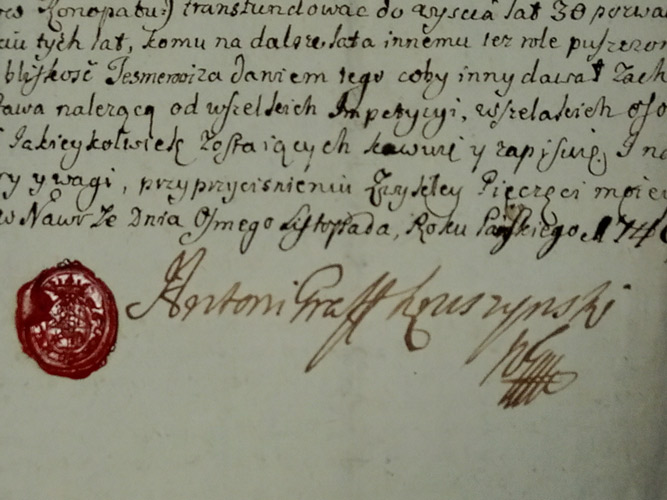 Konopatu:) transfundować do wyscia lat 30 porwa
tych lat, komu na dalsze lata innemu tez role puszczo
bliskość Jesmenowiza daniem tego coby inny dawał Zach
nalezącą od wszelkich Impetycyi, wszelakich oso
Jakieykolwiek zostaiących kawuię y zapisuię, I na
y wagi, przy przycisnieniu Zwykley Pięczęci moiey
w Nawrze Dnia Osmego Listopada, Roku Pańskiego 174
Antoni Graff Kruszynski